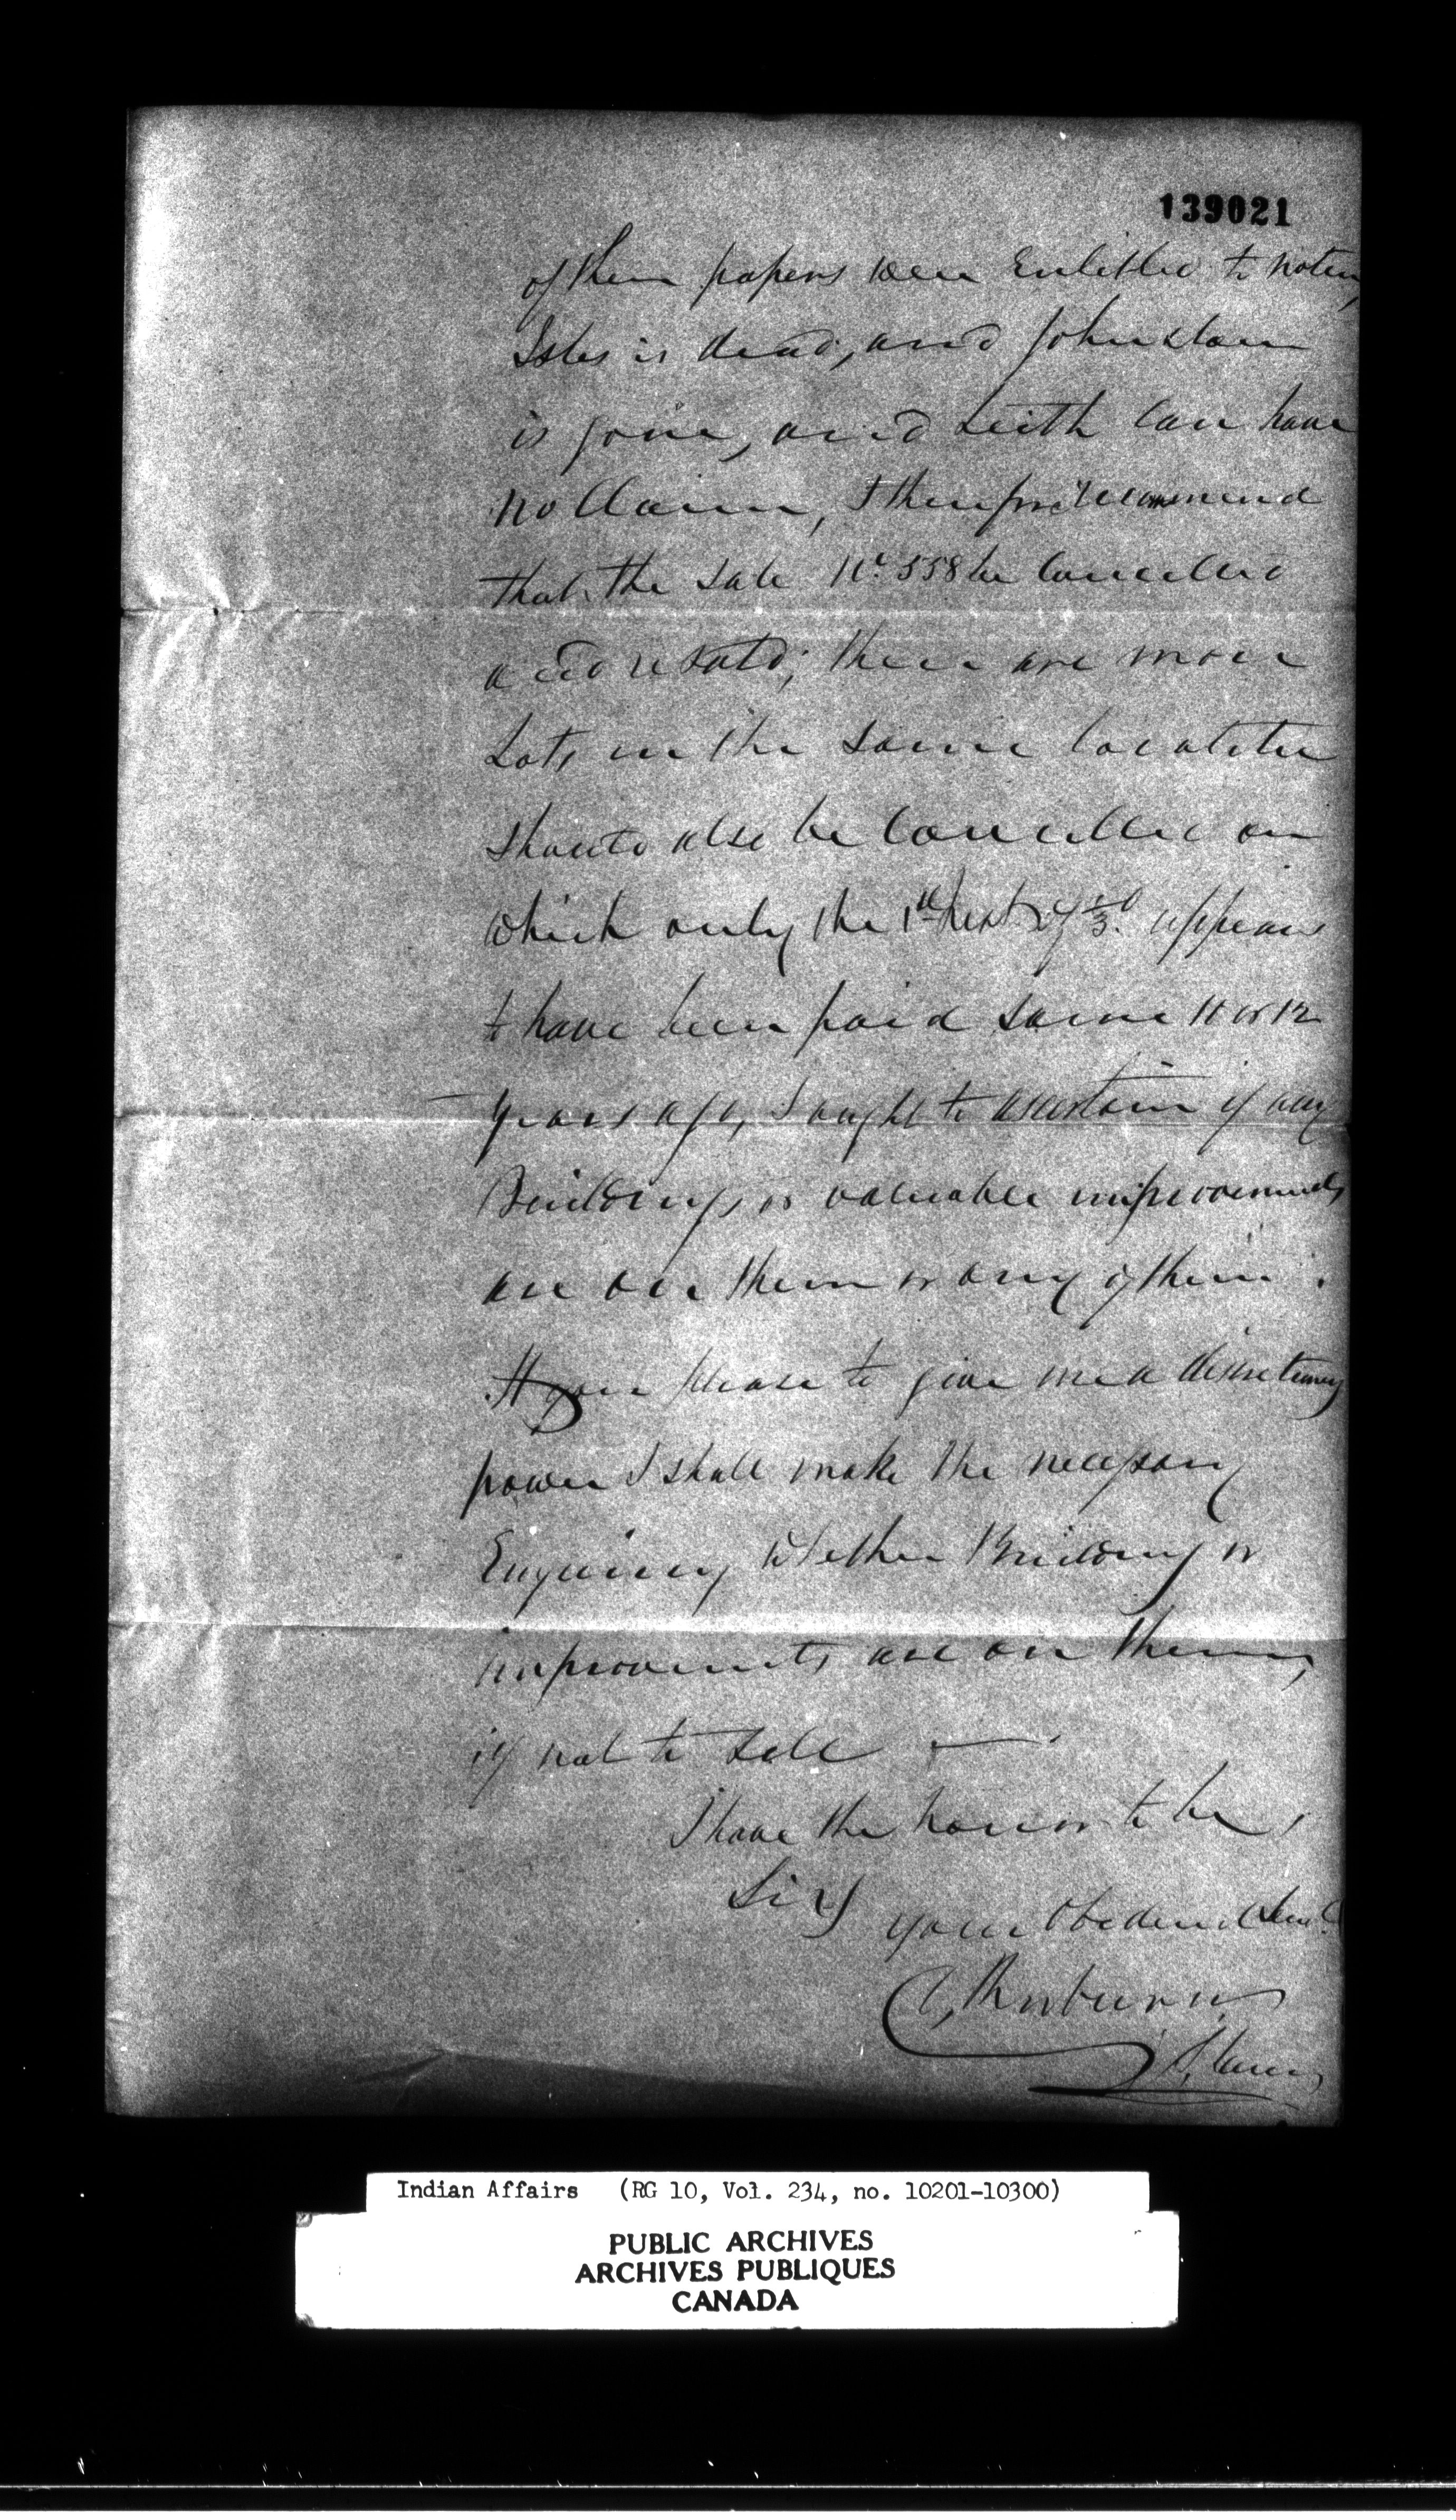 139021
of them papers were Entitled to notice,
Isles is dead, and Johnston
is gone, and Leith can have
no Claim, I therefore recommend
that the Sale No. 558 be Cancelled
and resold; there are more
Lots in the same
should also be Cancelled on
which only the 1st of appears
to have been paid some 11 or 12
years ago, I ought to ascertain if any
Buildings or valuable improvements
are on them or any of them.
If you please to give me a discretionary
power I shall make the necessary
Enquiry Whether Building or
improvements are on them,
if not to Sell —
I have the honor to be,
Sir
your Obedient Servt.
Thorburn
Indian Affairs (RG 10, Vol. 234, no. 10201-10300)
PUBLIC ARCHIVES
ARCHIVES PUBLIQUES
CANADA